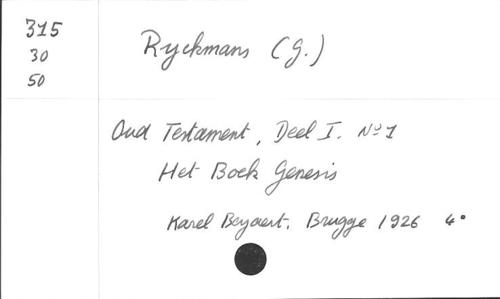 315
30
50
Ryckmans (G.)
Oud Testament, Deel I. Nº 1
Het Boek Genesis
Karel Beyaert. Brugge 1926 4°